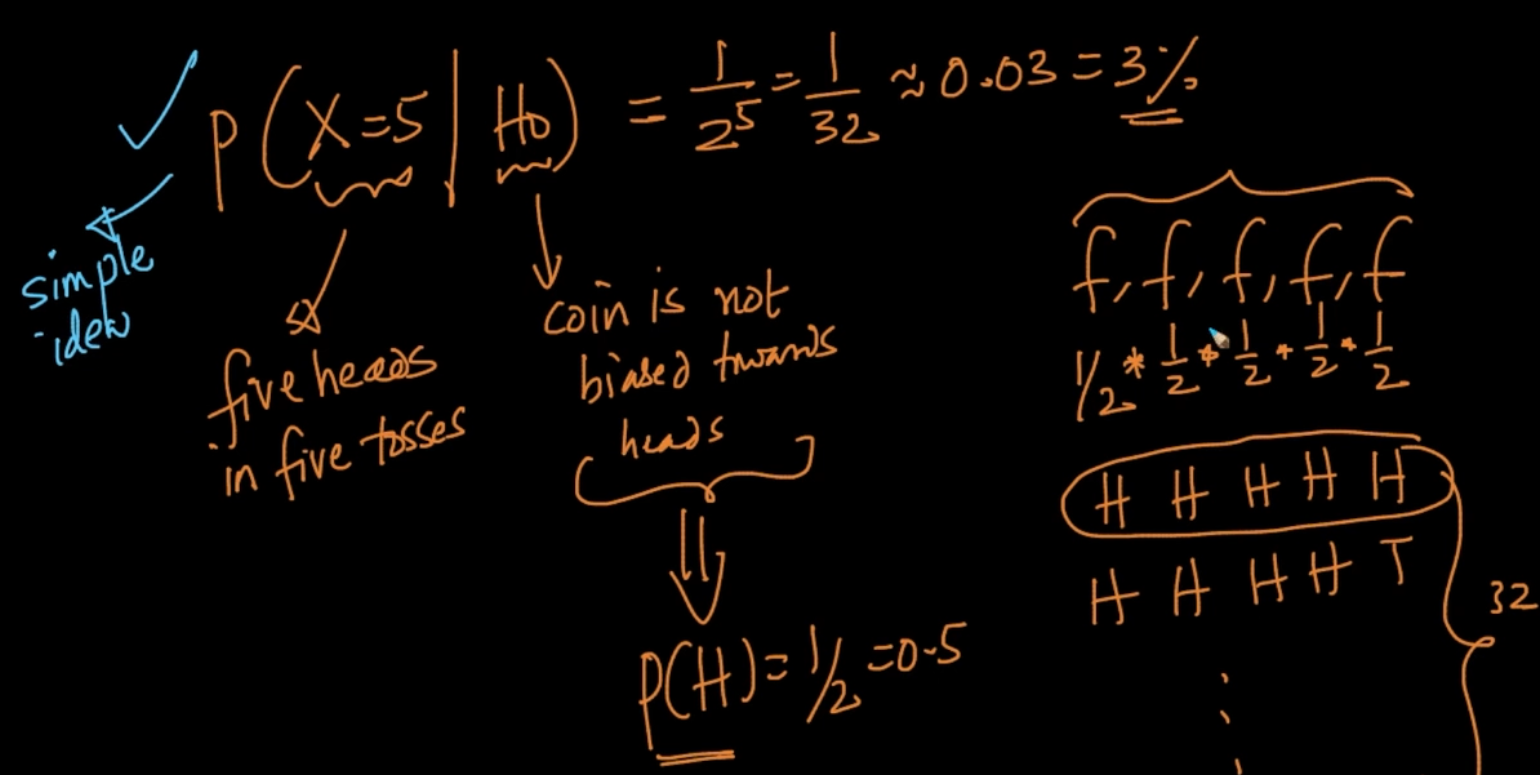 P(X=5 | H0) = 1/2^5 = 1/32 ≈ 0.03 = 3%
simple
idea
five heads
in five tosses
coin is not
biased towards
heads
P(H) = 1/2 = 0.5
f, f, f, f, f
1/2 * 1/2 * 1/2 * 1/2 * 1/2
H H H H H
H H H H T
32